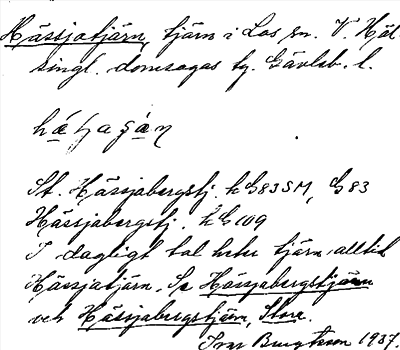 Hässjatjärn, tjärn i Los sn. V. Häl-
singl. domsagas tg. Gävleb. l.
St. Hässjabergstj. hS83SM, S83
Hässjabergstj. hS109
I dagligt tal heter tjärn alltid
Hässjatjärn. Se Hässjabergstjärn
och Hässjabergstjärn, Stora.
1937.